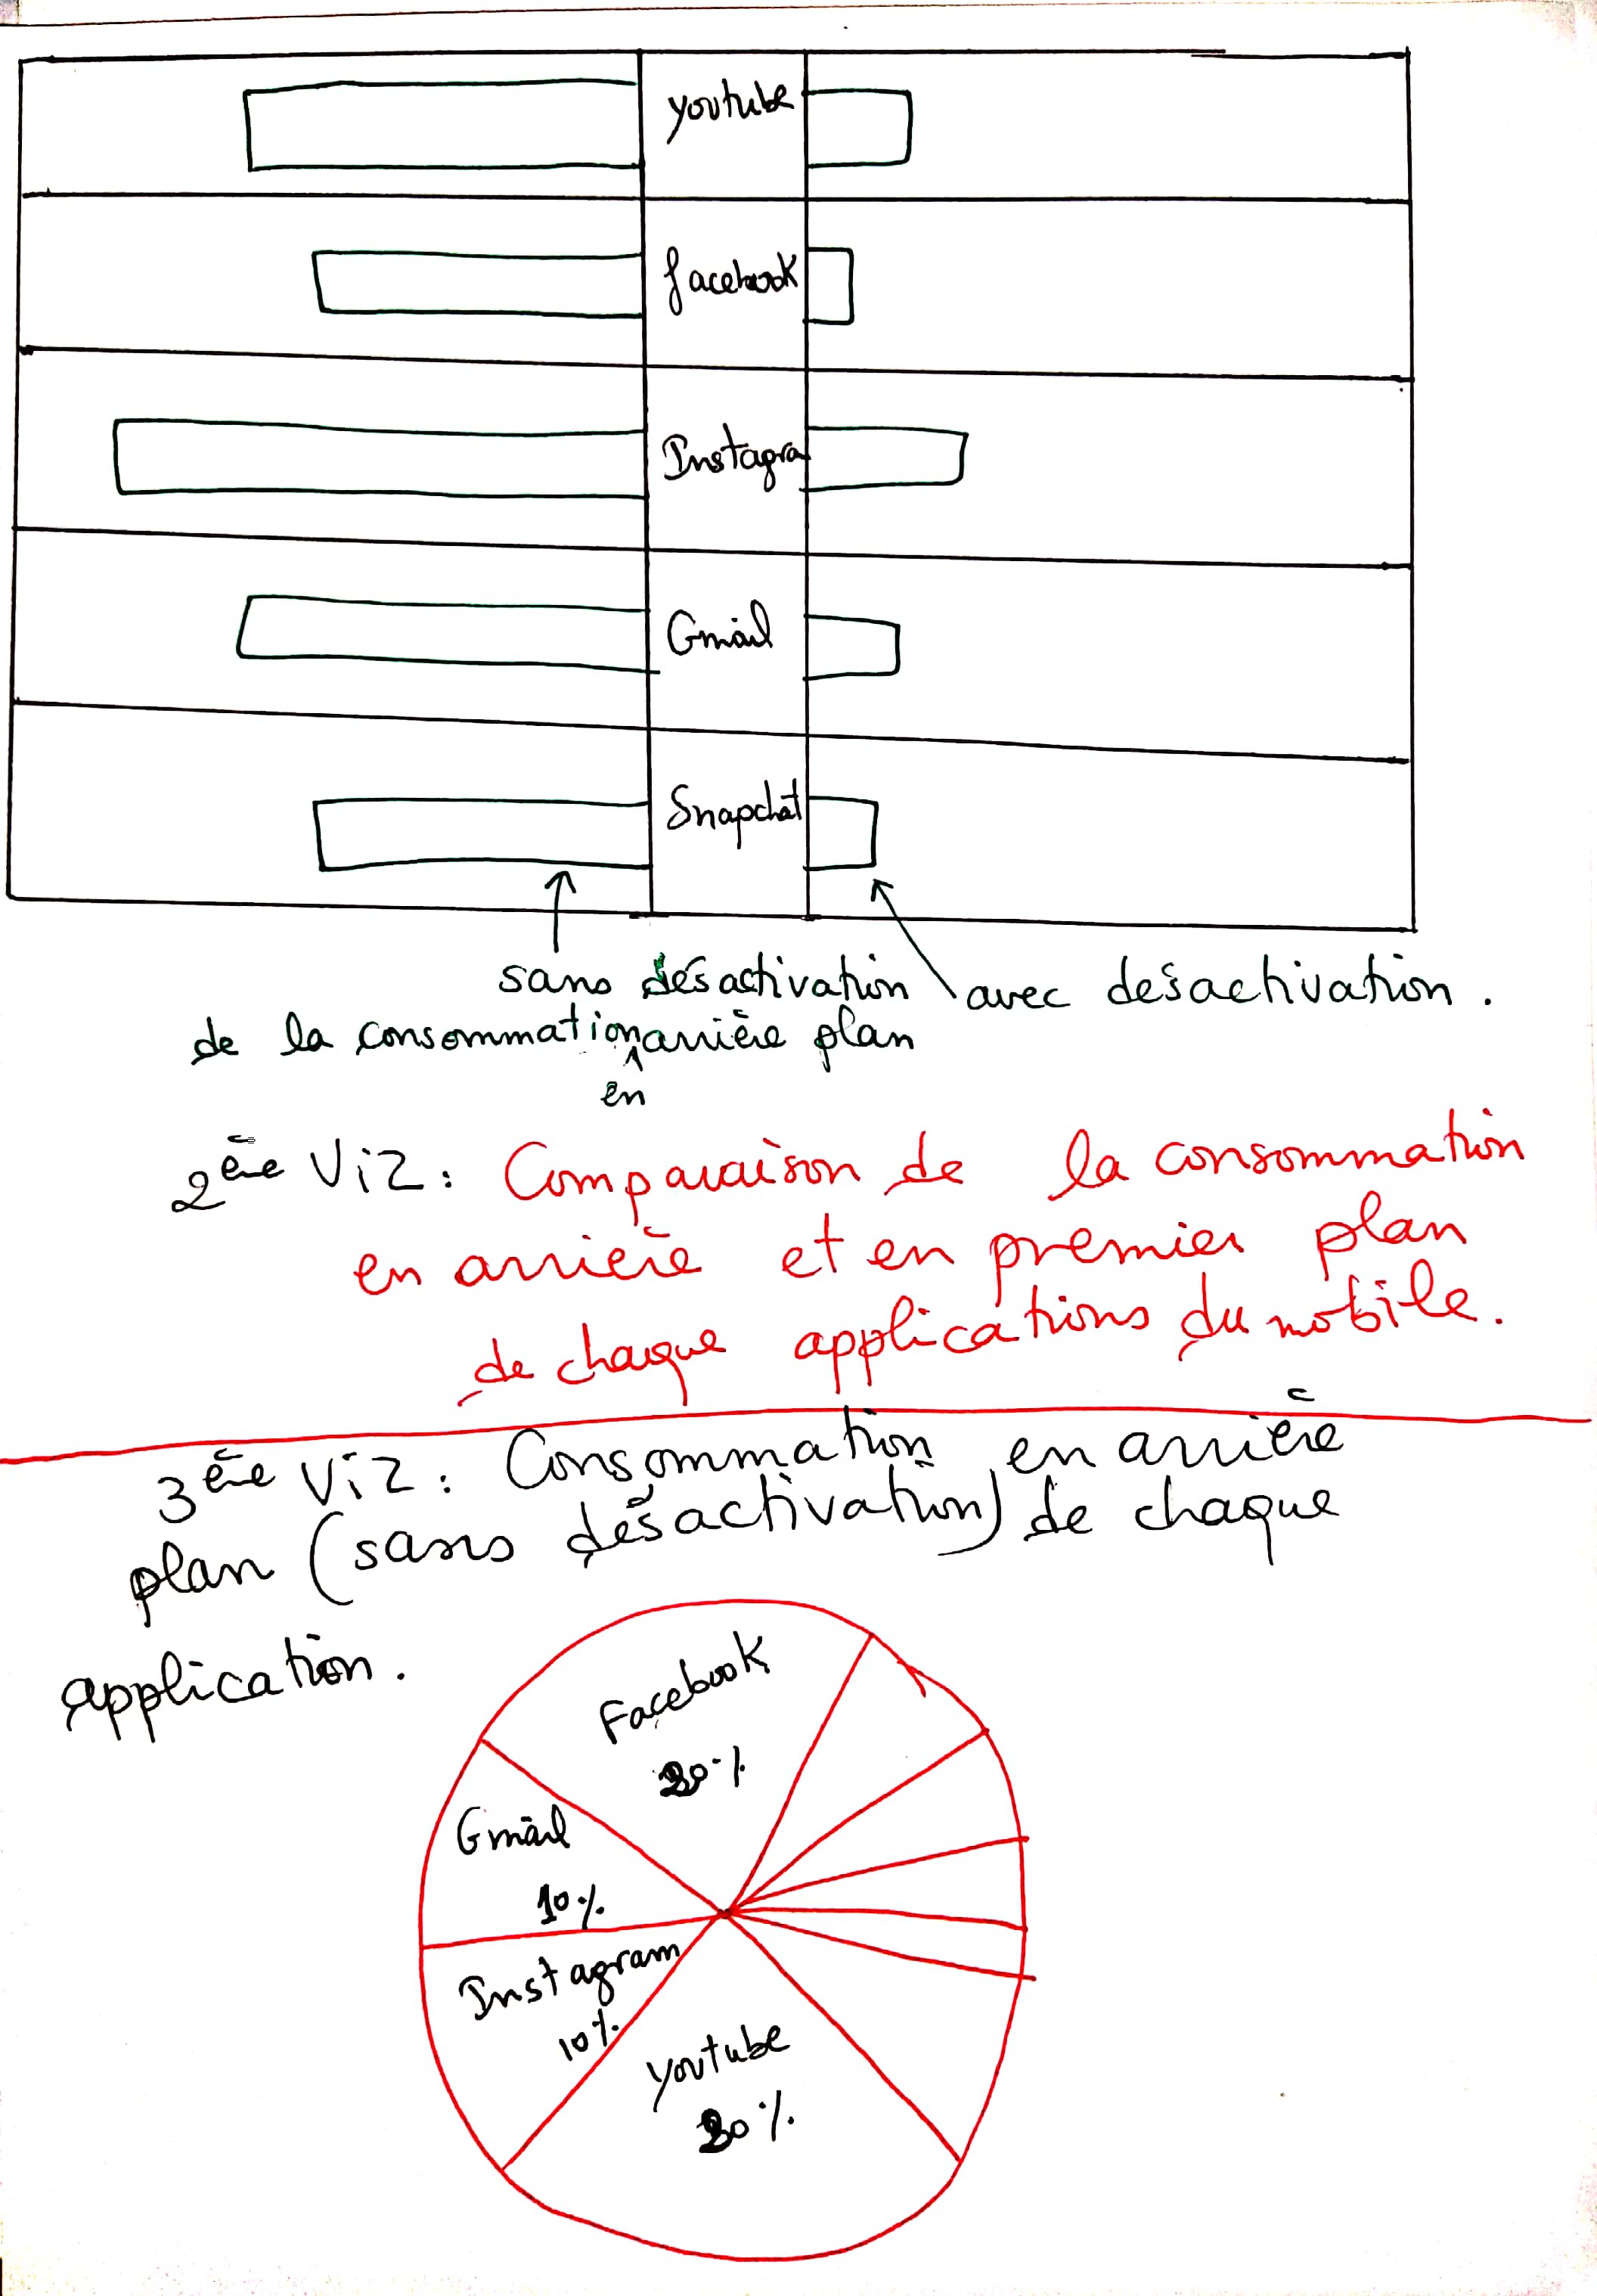 youtube
facebook
Instagra
Gmail
Snapchat
sans désactivation avec désactivation.
de la consommation arrière plan
en
2ème Viz: Comparaison de la consommation
en arrière et en premier plan
de chaque applications du mobile.
3ème Viz: Consommation en arrière
plan (sans désactivation) de chaque
application.
Facebook
%
Gmail
10%
Instagram
10%
youtube
%